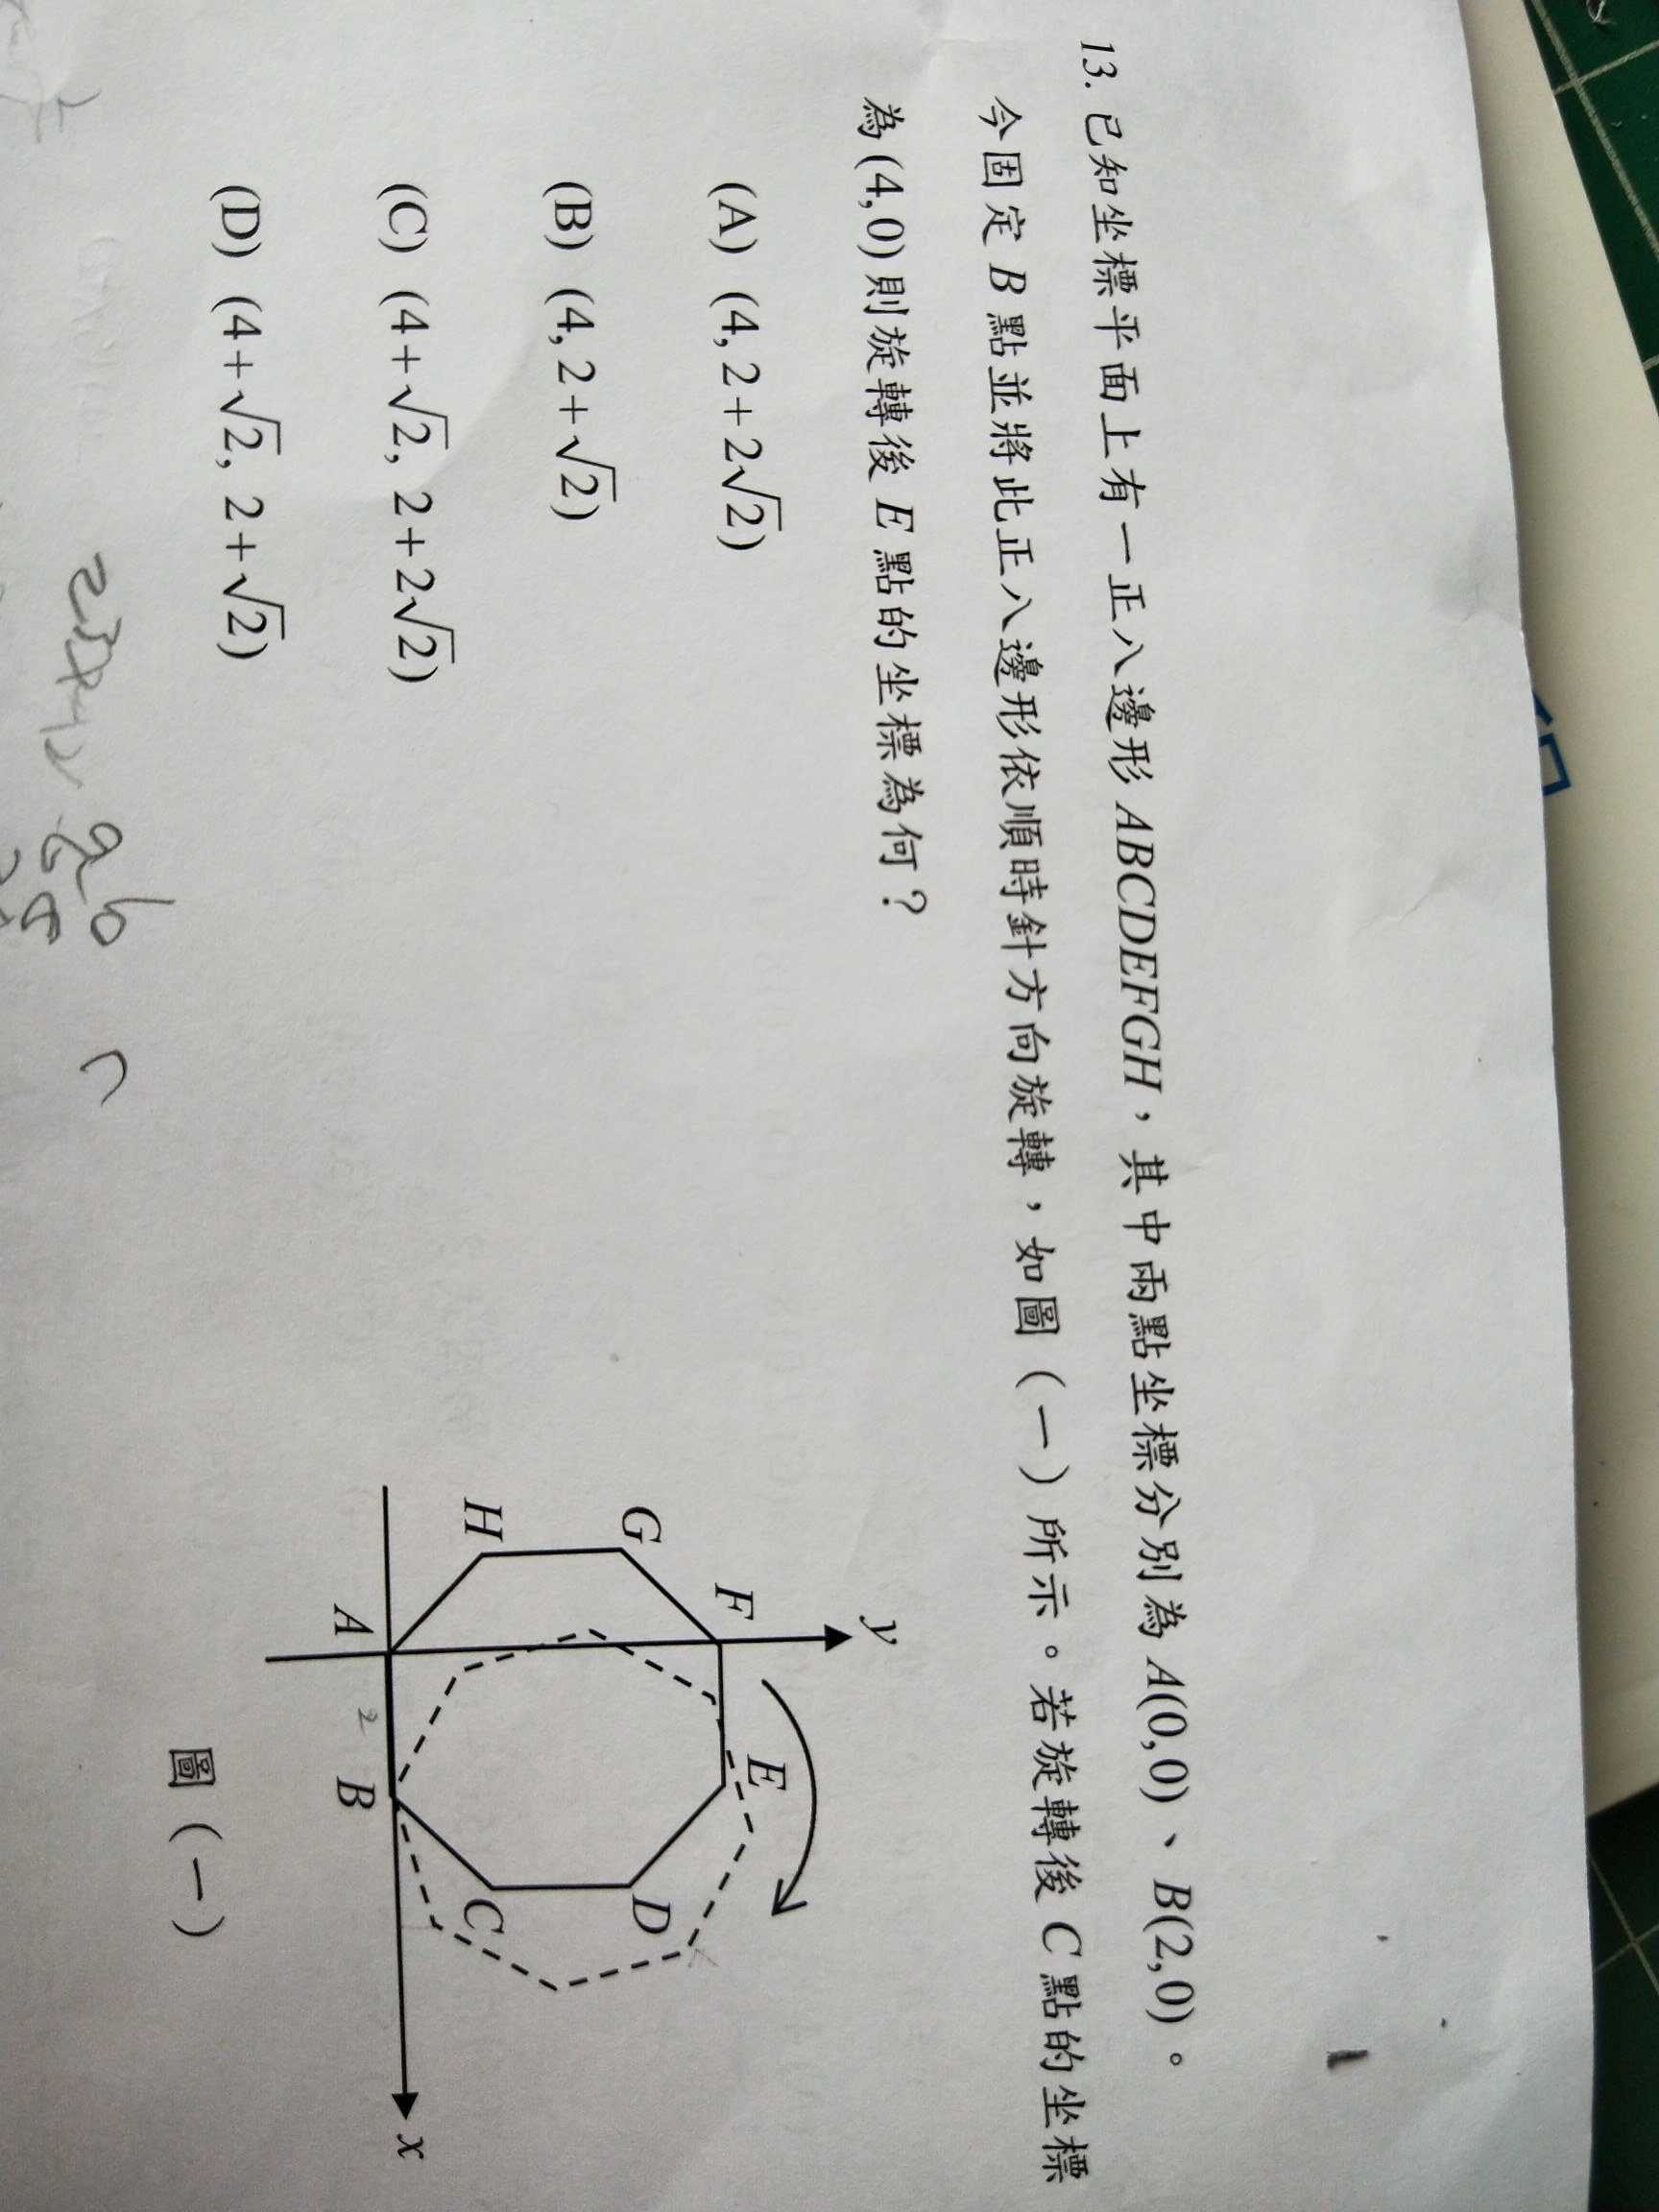 13. 已知坐標平面上有一正八邊形 ABCDEFGH，其中兩點坐標分別為 A(0,0)、B(2,0)。
今固定 B 點並將此正八邊形依順時針方向旋轉，如圖（一）所示。若旋轉後 C 點的坐標
為(4,0)則旋轉後 E 點的坐標為何？
(A) (4, 2+2√2)
(B) (4, 2+√2)
(C) (4+√2, 2+2√2)
(D) (4+√2, 2+√2)
y
F
E
G
D
H
C
A
2
B
x
圖（一）